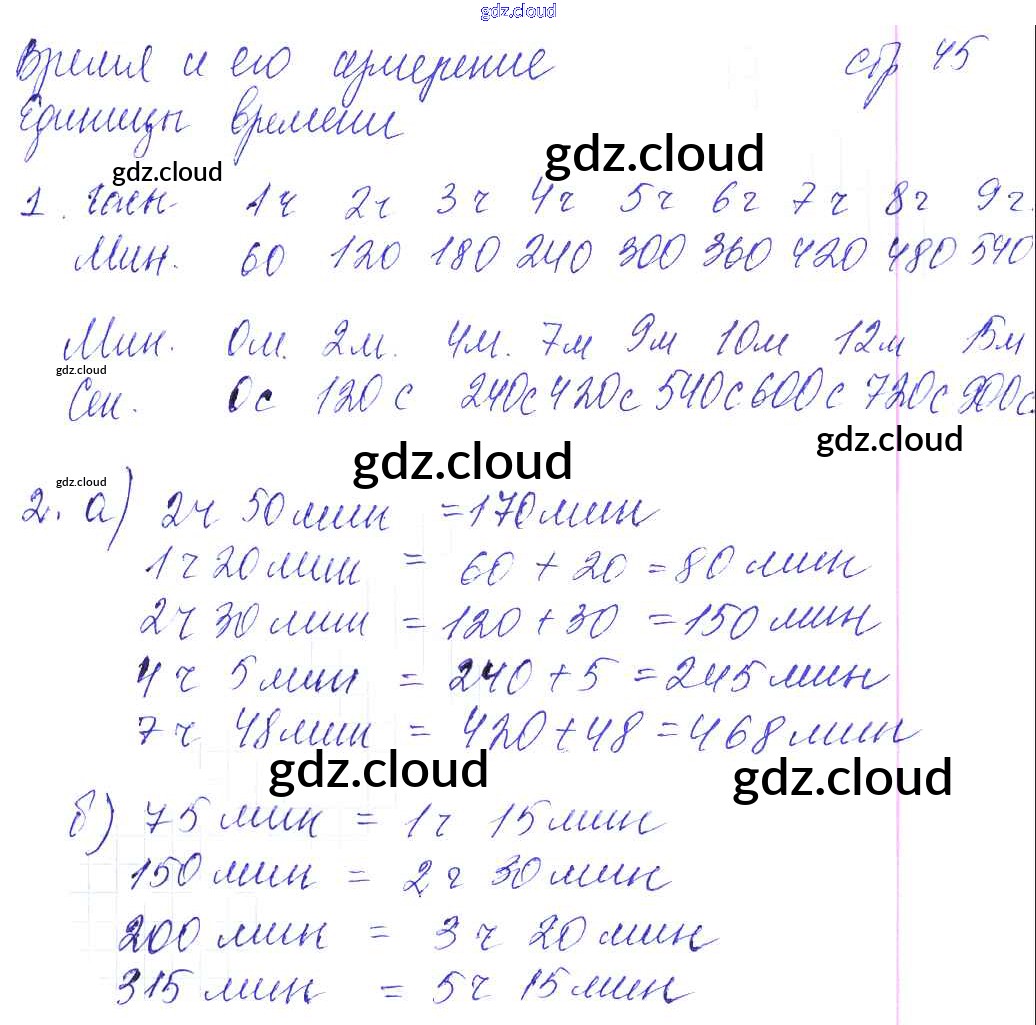 gdz.cloud
Время и его измерение стр 45
Единицы времени
gdz.cloud
gdz.cloud
1. 1ч 2ч 3ч 4ч 5ч 6ч 7ч 8ч 9ч
Мин. 60 120 180 240 300 360 420 480 540
Мин. 0м. 2м. 4м. 7м 9м 10м 12м 15м
gdz.cloud
Сек. 0с 120с 240с 420с 540с 600с 720с 900с
gdz.cloud
gdz.cloud
gdz.cloud
2. а) 2ч 50мин = 170мин
1ч 20мин = 60 + 20 = 80мин
2ч 30мин = 120 + 30 = 150мин
4ч 5мин = 240 + 5 = 245мин
7ч 48мин = 420 + 48 = 468мин
gdz.cloud
gdz.cloud
б) 75мин = 1ч 15мин
150мин = 2ч 30мин
200мин = 3ч 20мин
315мин = 5ч 15мин